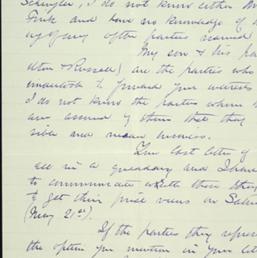 Schuyler, I do not know either Mr
Fink and have no knowledge of
any of the parties named
My son & his par
& Russell) are the parties who
to forward your
I do not know the parties whom
are assured of them that they
and mean business.
Your last letter of
me in a quandary and I have
to communicate with these
to get their views on
(May 21st).
If the parties they repres
the option you mention in your let